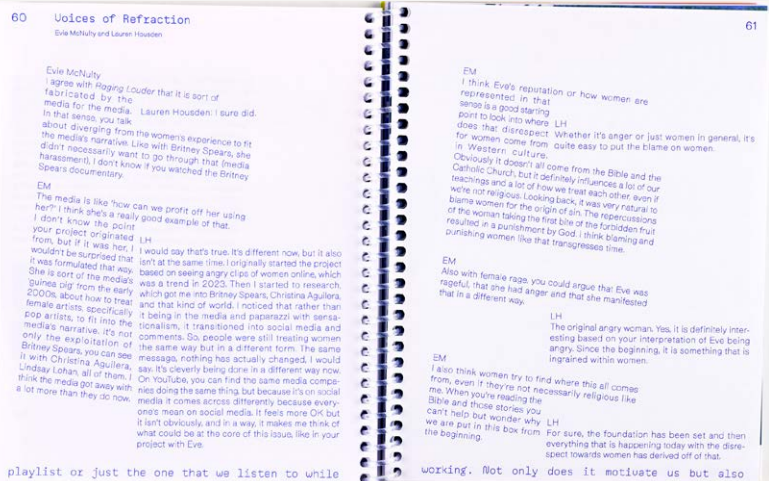 60
Voices of Refraction
Evie McNulty and Lauren Housden
Evie McNulty
I agree with Raging Louder that it is sort of
fabricated by the
media for the media.
In that sense, you talk
about diverging from the women's experience to fit
the media's narrative. Like with Britney Spears, she
didn't necessarily want to go through that (media
harassment), I don't know if you watched the Britney
Spears documentary.
Lauren Housden: I sure did.
EM
The media is like 'how can we profit off her using
her?' I think she's a really good example of that.
I don't know the point
your project originated
from, but if it was her, I
wouldn't be surprised that
it was formulated that way.
She is sort of the media's
'guinea pig' from the early
2000s, about how to treat
female artists, specifically
pop artists, to fit into the
media's narrative. it's not
only the exploitation of
Britney Spears, you can see
it with Christina Aguilera,
Lindsay Lohan, all of them. I
think the media got away with
a lot more than they do now.
LH
I would say that's true. It's different now, but it also
isn't at the same time. I originally started the project
based on seeing angry clips of women online, which
was a trend in 2023. Then I started to research,
which got me into Britney Spears, Christina Aguilera,
and that kind of world. I noticed that rather than
it being in the media and paparazzi with sensa-
tionalism, it transitioned into social media and
comments. So, people were still treating women
the same way but in a different form. The same
message, nothing has actually changed, I would
say. It's cleverly being done in a different way now.
On YouTube, you can find the same media compa-
nies doing the same thing, but because it's on social
media it comes across differently because every-
one's mean on social media. It feels more OK but
it isn't obviously, and in a way, it makes me think of
what could be at the core of this issue, like in your
project with Eve.
playlist or just the one that we listen to while
61
EM
I think Eve's reputation or how women are
represented in that
sense is a good starting
point to look into where
does that disrespect
for women come from
in Western culture.
Obviously it doesn't all come from the Bible and the
Catholic Church, but it definitely influences a lot of our
teachings and a lot of how we treat each other, even if
we're not religious. Looking back, it was very natural to
blame women for the origin of sin. The repercussions
of the woman taking the first bite of the forbidden fruit
resulted in a punishment by God. I think blaming and
punishing women like that transgresses time.
LH
Whether it's anger or just women in general, it's
quite easy to put the blame on women.
EM
Also with female rage, you could argue that Eve was
rageful, that she had anger and that she manifested
that in a different way.
LH
The original angry woman. Yes, it is definitely inter-
esting based on your interpretation of Eve being
angry. Since the beginning, it is something that is
ingrained within women.
EM
I also think women try to find where this all comes
from, even if they're not necessarily religious like
me. When you're reading the
Bible and those stories you
can't help but wonder why
we are put in this box from
the beginning.
LH
For sure, the foundation has been set and then
everything that is happening today with the disre-
spect towards women has derived off of that.
working. Not only does it motivate us but also